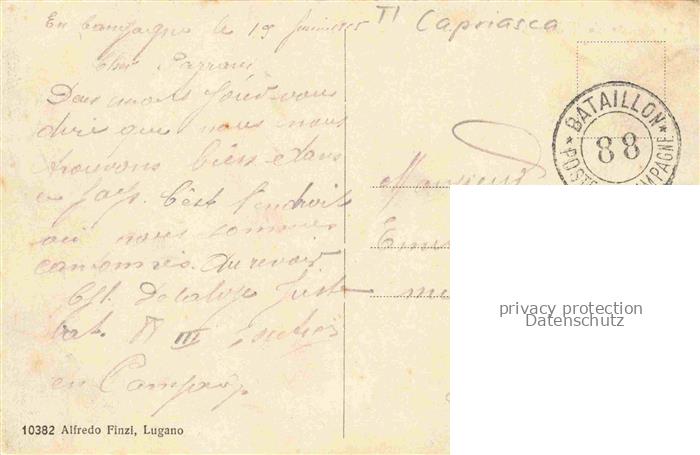 En campagne le 19
TI Capriasca
Cher Parrain
Deux mots pour vous
dire que nous nous
trouvons bien dans
ce pays. C'est l'endroit
où nous sommes
cantonnés. Au revoir
bat. III
en Campagne
BATAILLON
88
POSTE CAMPAGNE
Monsieur
privacy protection
Datenschutz
10382 Alfredo Finzi, Lugano